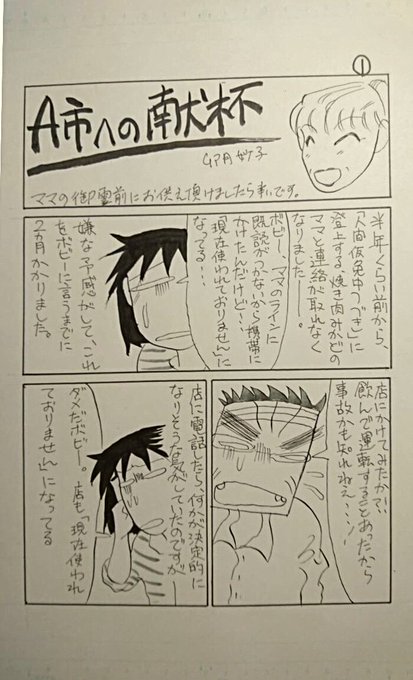 ①
A市への献杯
卯月妙子
ママの御霊前にお供え頂けましたら幸いです。
半年くらい前から、
「人間仮免中つづき」に
登上する焼き肉みかどの
ママと連絡が取れなく
なりました。
ボビー、ママのラインに
既読がつかないから携帯に
かけたんだけど…
「現在使われておりません」に
なってる…
嫌な予感がして、これ
をボビーに言うまでに
2ヵ月かかりました。
店にかけてみたか?
飲んで運転することあったから
事故かも知れねえ…!
店に電話したら、何かが決定的に
なりそうな気がしていたのですが
ダメだボビー。店も「現在使われ
ておりません」になってる